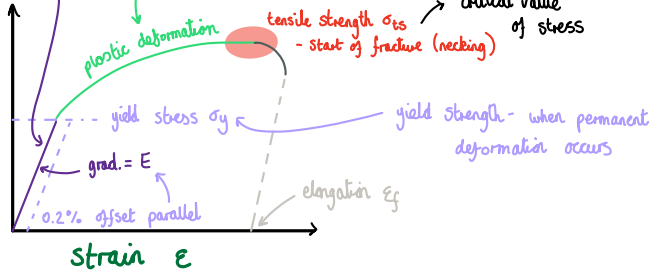 critical value
of stress
tensile strength σts
- start of fracture (necking)
plastic deformation
yield stress σy
yield strength - when permanent
deformation occurs
grad. = E
elongation εf
0.2% offset parallel
strain ε